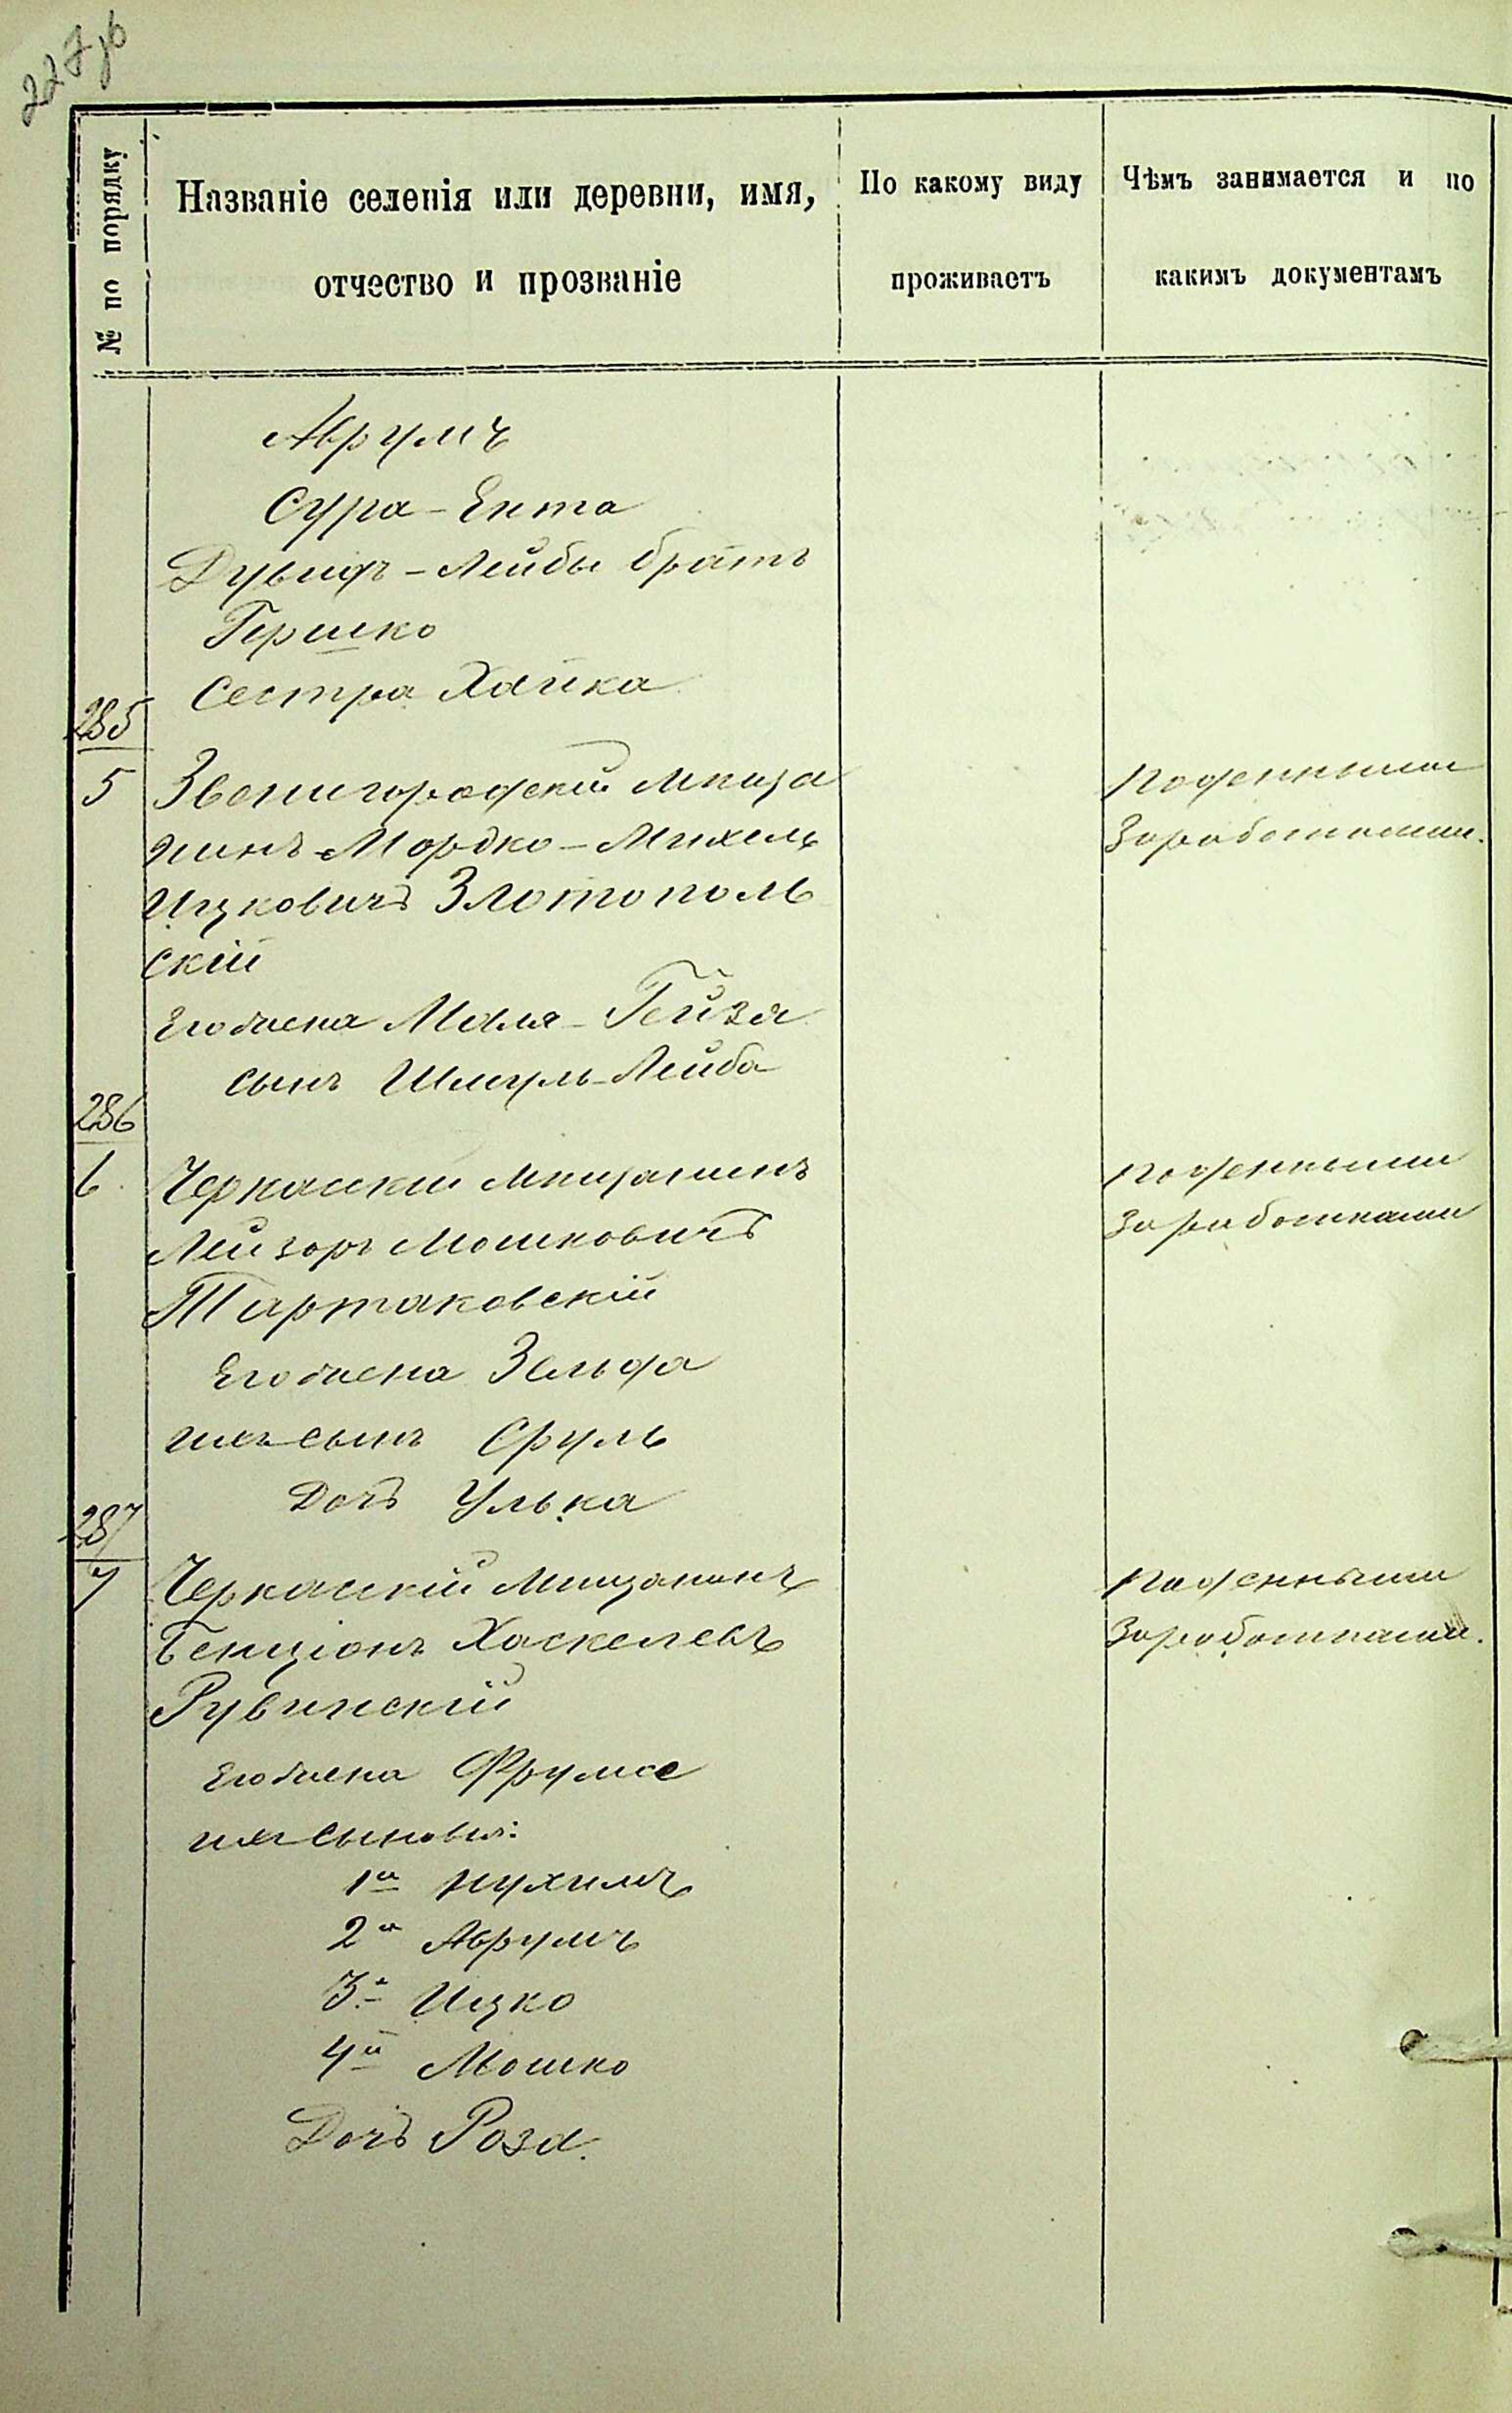 227об
№ по порядку
Названіе селенія или деревни, имя,
отчество и прозваніе
По какому виду
проживаетъ
Чѣмъ занимается и по
какимъ документамъ
Аврумъ
Сура-Ента
Дувидъ-Лейбы братъ
Гершко
Сестра Хайка
285
5
Звенигородскій мѣща
нинъ Мордко-Михель
Ицковичъ Злотополь
скій
Его жена Маля-Гейзя
сынъ Шмуль-Лейба
Поденными
заработками.
286
6
Черкаскій мѣщанинъ
Лейзоръ Мошковичъ
Тартаковскій
Его жена Зельда
ихъ сынъ Сруль
Дочь Улька
Поденными
заработками
287
7
Черкаскій мѣщанинъ
Бенціонъ Хаскелевъ
Рувинскій
Его жена Фрума
ихъ сыновья:
1й Нухимъ
2й Аврумъ
3й Ицко
4й Мошко
Дочь Роза.
Поденными
заработками.